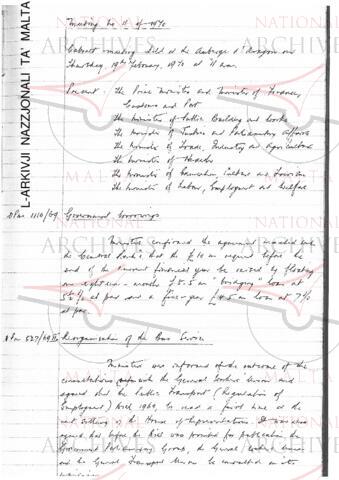 Meeting No 11 of 1970
Cabinet meeting held at the Auberge d'Aragon on
Thursday, 19th February, 1970 at 11 a.m.
Present: the Prime Minister and Minister of Finance,
Customs and Port
the Minister of Public Building and Works
the Minister of Justice and Parliamentary Affairs
the Minister of Trade, Industry and Agriculture
the Minister of Health
the Minister of Education, Culture and Tourism
the Minister of Labour, Employment and Welfare
1110/69 Government borrowings
Ministers confirmed the agreement reached with
the Central Bank that the £10 m required before the
end of the current financial year be raised by floating
an eighteen-months £5.5 m "bridging" loan at
at par and a five-year £4.5 m loan at 7%
at par.
527/69 Reorganisation of the Bus Service
Ministers were informed of the outcome of the
consultations with the General Workers Union and
agreed that the Public Transport (Regulation of
Employment) Bill 1969, be read a first time at the
next sitting of the House of Representatives. It was also
agreed that before the Bill was printed for publication the
Government Parliamentary Group, the General Workers Union
and the General Transport Union be consulted on its
provisions.
L-ARKIVJI NAZZJONALI TA' MALTA
NATIONAL
ARCHIVES
MALTA